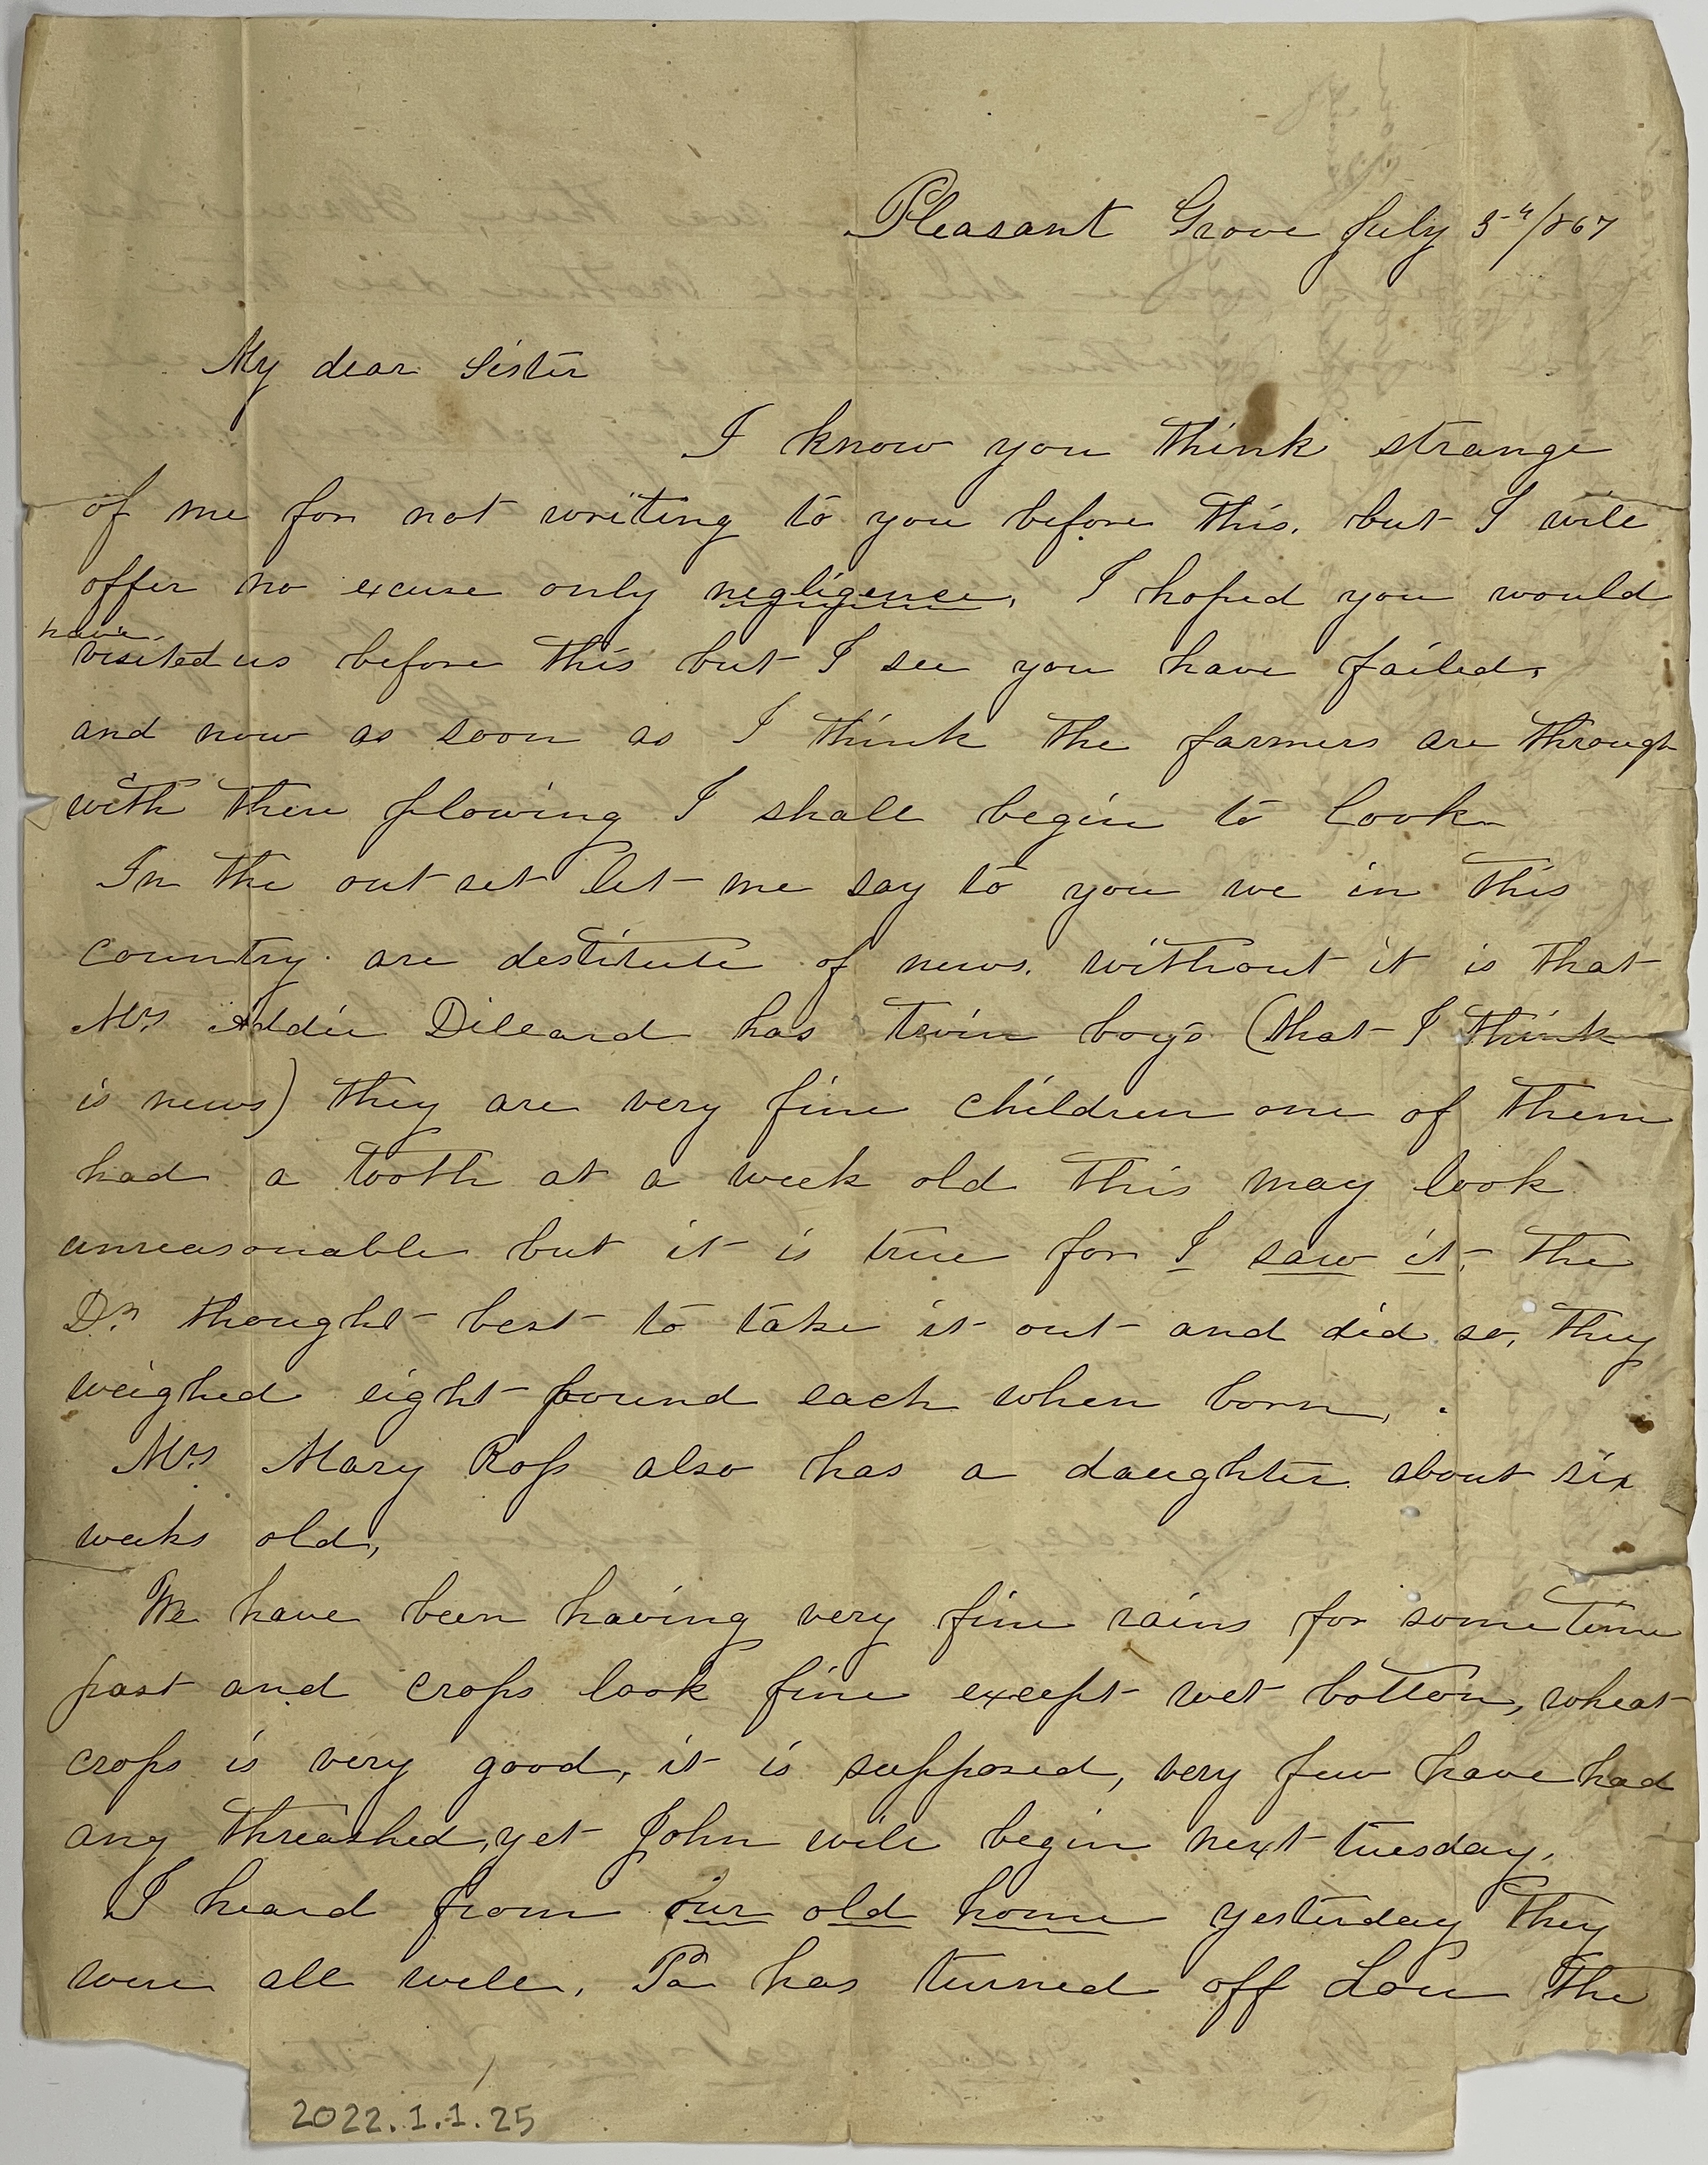 Pleasant Grove July 5th/867
My dear Sister
I know you think strange
of me for not writing to you before this. but I will
offer no excuse only negligence, I hoped you would
have
visited us before this but I see you have failed,
and now as soon as I think the farmers are through
with their plowing I shall begin to look
In the out set let me say to you we in this
country are destitute of news. without it is that
Mrs Addie Dillard has twin boys (that I think
is news) they are very fine children one of them
had a tooth at a week old this may look
unreasonable but it is true for I saw it, the
Dr. thought best to take it out and did so, they
weighed eight pound each when born,
Mrs Mary Ross also has a daughter about six
weeks old,
We have been having very fine rains for sometime
past and crops look fine except wet bottom, wheat
crops is very good, it is supposed, very few have had
any threashed, yet John will begin next tuesday,
I heard from our old home yesterday they
were all well, Pa has turned off Lou the
2022.1.1.25